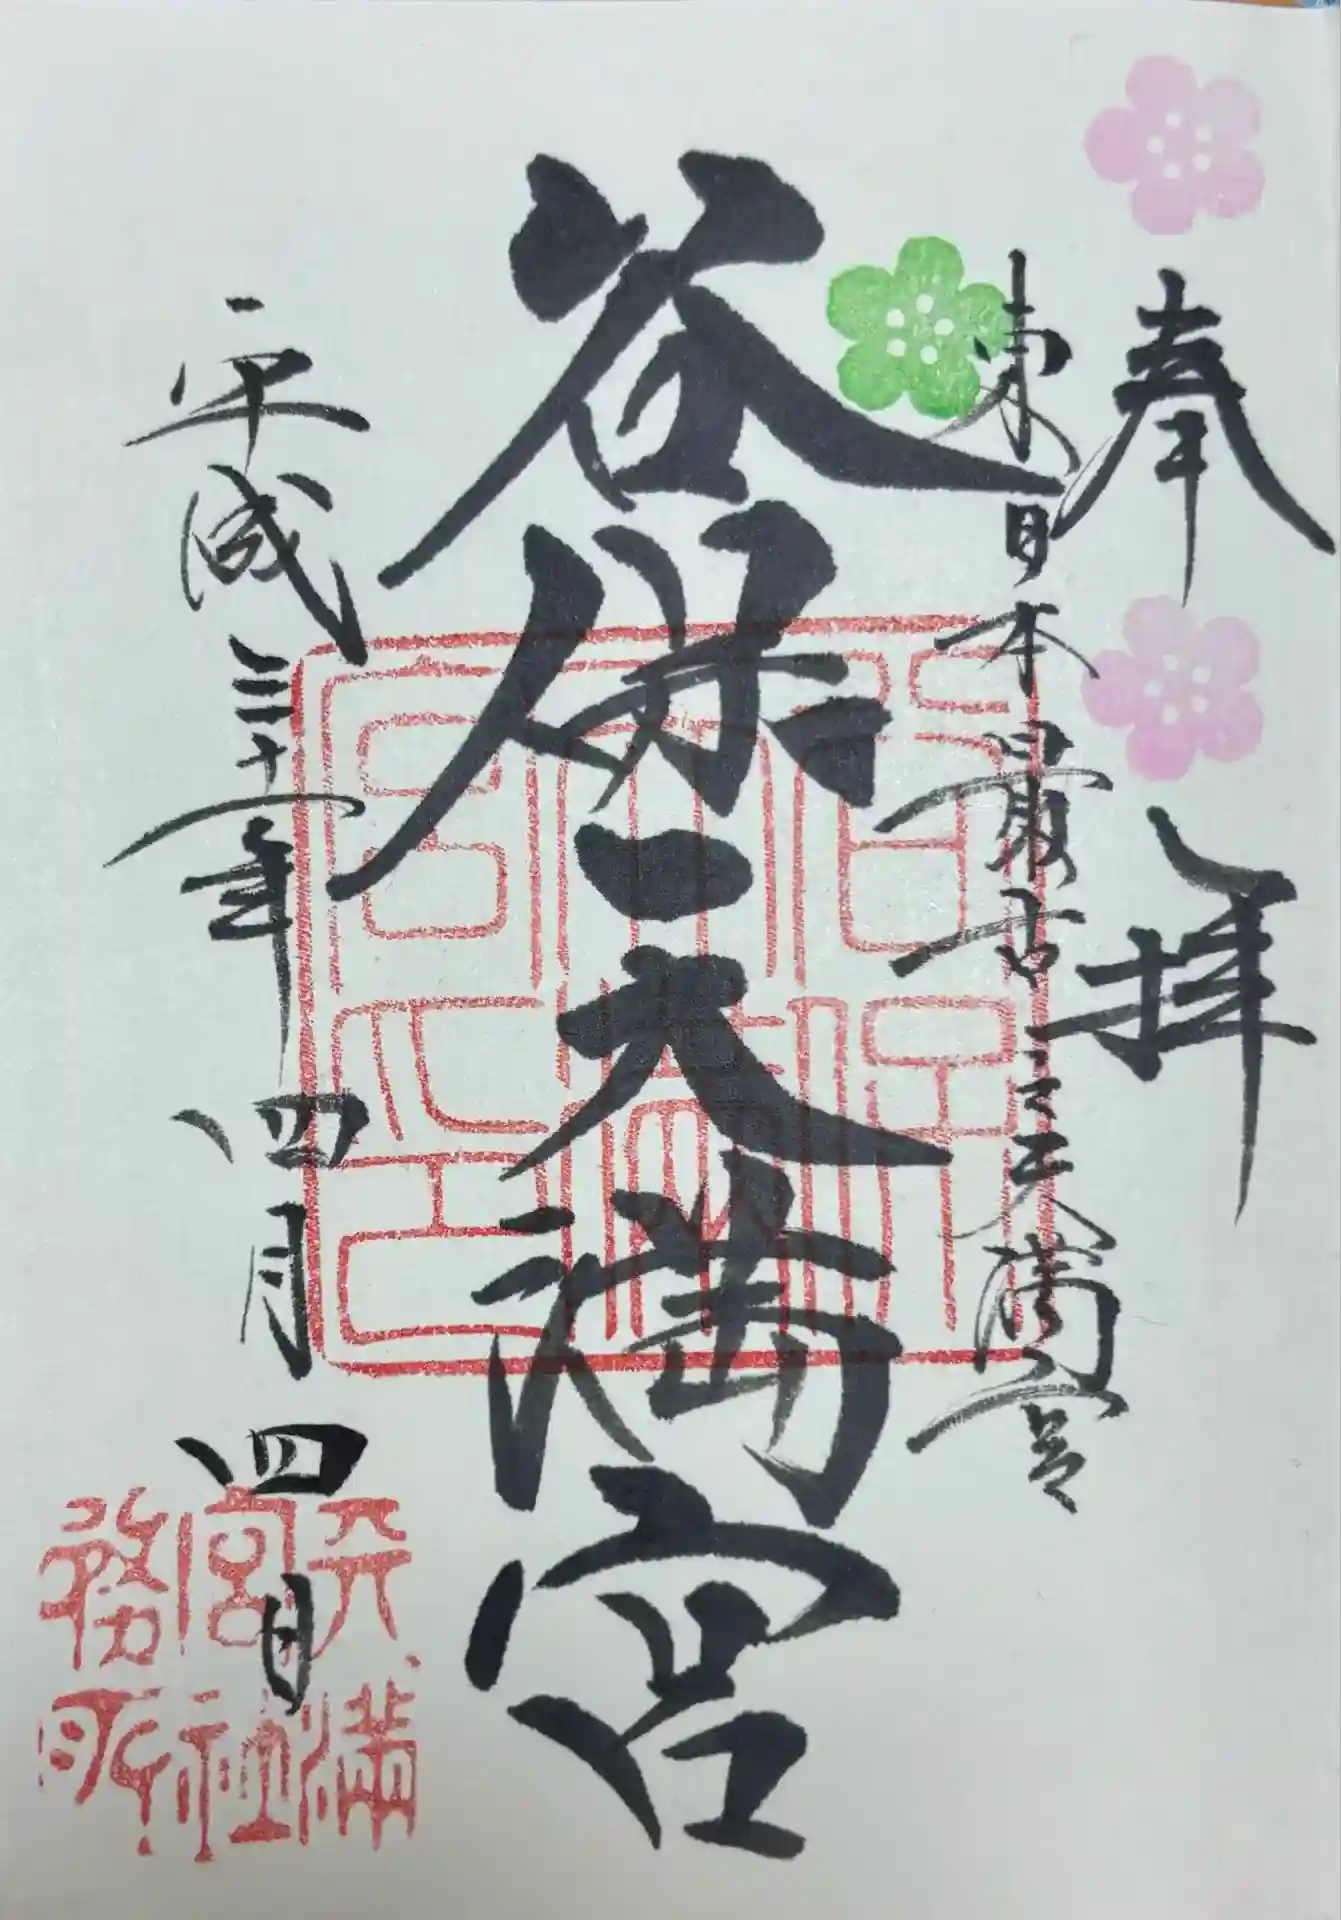 奉拝
東日本最古天満宮
谷保天満宮
平成三十年四月四日
天満宮社務所